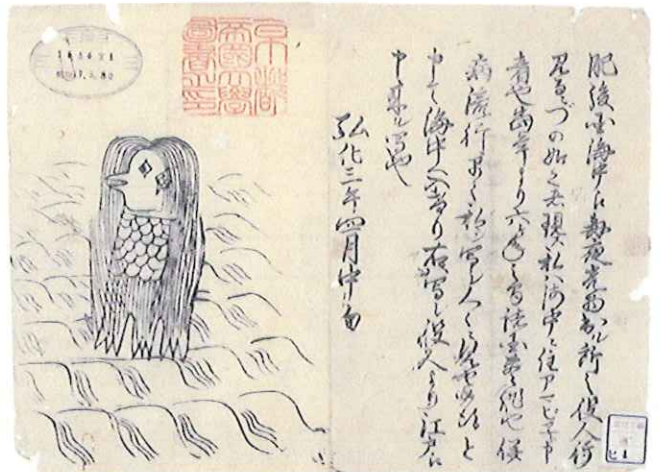 肥後国海中江毎夜光物出ル所之役人行
見るニづの如く者現ス私ハ海中ニ住アマビヱト申
者也当年より六ヶ年之間諸国豊作也併
病流行早々私ヲ写シ人々ニ見セ候得と
申て海中へ入けり右ハ写シ役人より江戸江
申来ル写也
弘化三年四月中旬
京都
帝國大學
圖書之印